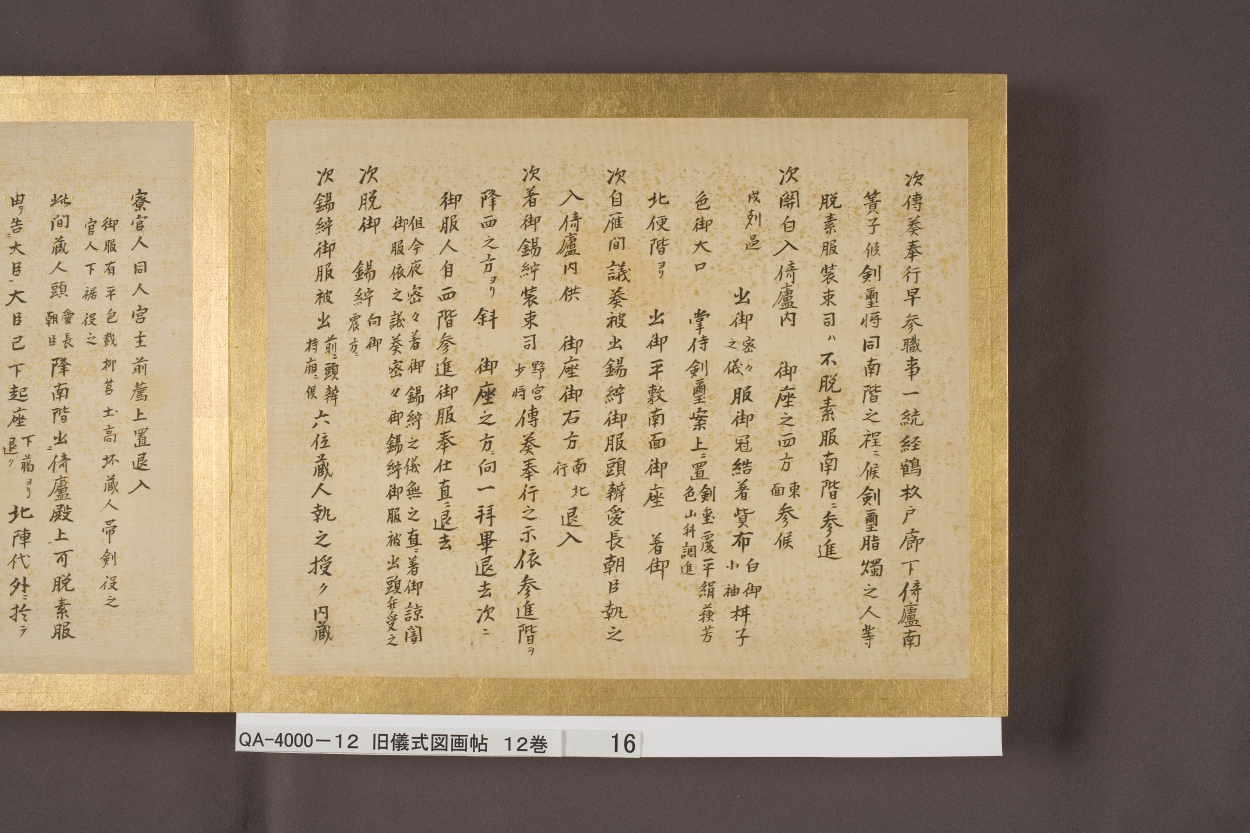 次傳奏奉行早参職事一統経鶴杦戸廊下倚廬南
簀子候剣璽将同南階之裎ニ候剣璽脂燭之人等
脱素服装束司ハ不脱素服南階ニ参進
次関白入倚廬内 御座之西方東面参候
戌刻過 出御密々之儀服御冠縄著貲布白御小袖桙子
色御大口 掌侍剣璽案上ニ置剣璽覆平絹蘓芳色山科調進
北便階ヨリ 出御平敷南面御座 著御
次自雁間議奏被出錫紵御服頭辨愛長朝臣執之
入倚廬内供 御座御右方南北行退入
次著御錫紵装束司野宮少将傳奏奉行之示依参進階ヲ
降西之方ヨリ斜 御座之方ニ向一拝畢退去次ニ
御服人自西階参進御服奉仕直ニ退去
但今夜密々著御錫紵之儀無之直ニ著御諒闇
御服依之議奏密々御錫紵御服被出頭弁受之
次脱御 錫紵向御震方ニ
次錫紵御服被出前ニ頭辨持廂ニ候六位蔵人執之授ク内蔵
寮官人同人宮主前薦上置退入
御服有平包載柳筥土高坏蔵人帯剣役之
官人下裾役之
此間蔵人頭愛長朝臣降南階出倚廬殿上可脱素服
由ヲ告ニ大臣ニ大臣已下起座下﨟ヨリ退ク北陣代外ニ於テ
QA-4000-12 旧儀式図画帖 12巻 16